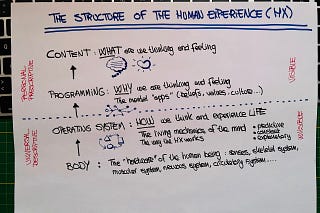 THE STRUCTURE OF THE HUMAN EXPERIENCE (HX)
CONTENT: WHAT are we thinking and feeling
PROGRAMMING: WHY are we thinking and feeling
The mental "apps" (beliefs, values, culture...)
OPERATING SYSTEM: HOW we think and experience LIFE
The living mechanics of the mind
The way the HX works
• predictive
• constant
• explanatory
BODY: The "hardware" of the human being: senses, skeletal system,
muscular system, nervous system, circulatory system....
PERSONAL
PRESCRIPTIVE
UNIVERSAL
DESCRIPTIVE
VISIBLE
INVISIBLE